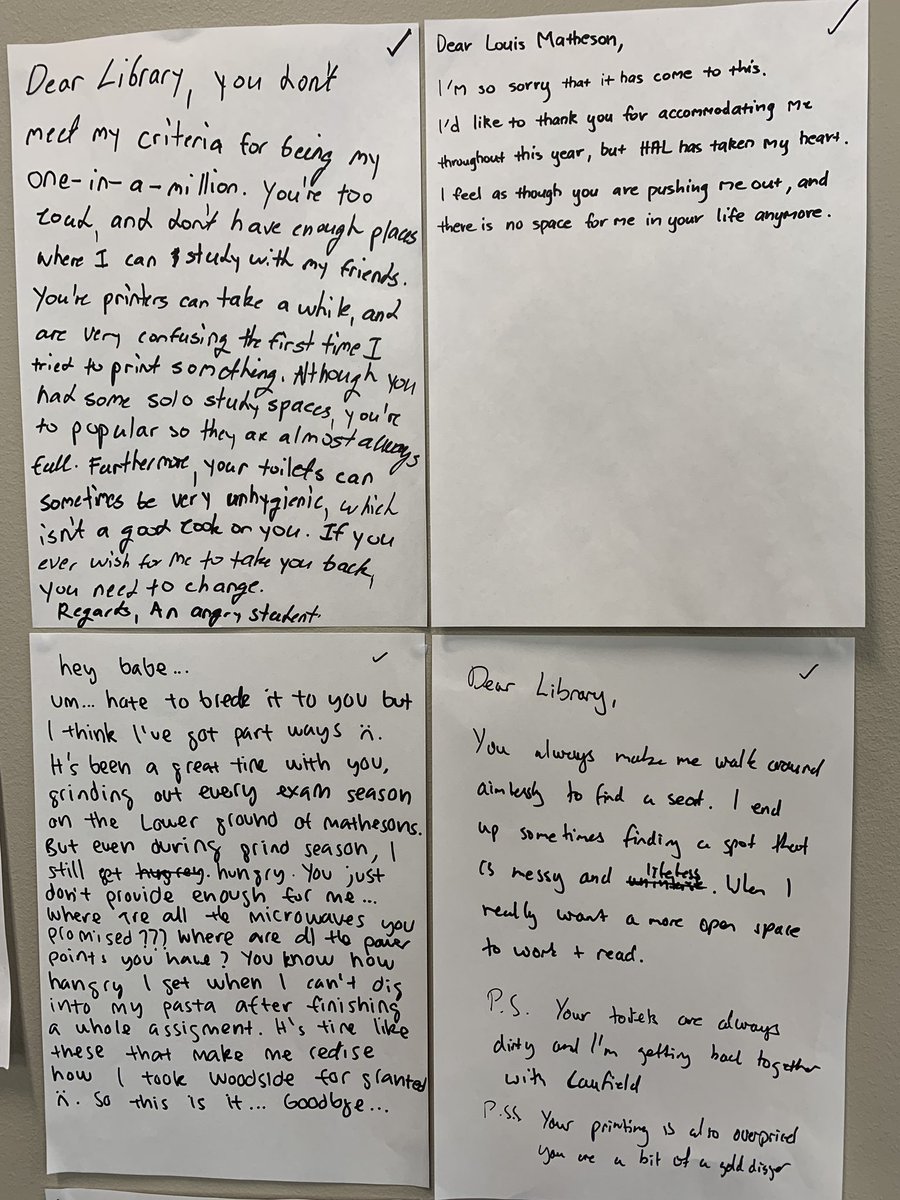 Dear Library, you don't
meet my criteria for being my
one-in-a-million. You're too
loud, and don't have enough places
where I can study with my friends.
You're printers can take a while, and
are very confusing the first time I
tried to print something. Although you
had some solo study spaces, you're
to popular so they are almost always
full. Furthermore, your toilets can
sometimes be very unhygienic, which
isn't a good look on you. If you
ever wish for me to take you back,
you need to change.
Regards, An angry student.
Dear Louis Matheson,
I'm so sorry that it has come to this.
I'd like to thank you for accommodating me
throughout this year, but HAL has taken my heart.
I feel as though you are pushing me out, and
there is no space for me in your life anymore.
hey babe...
um... hate to brede it to you but
I think I've got part ways :(.
It's been a great time with you,
grinding out every exam season
on the Lower ground of mathesons.
But even during grind season, I
still get hungry. You just
don't provide enough for me...
where are all the microwaves you
promised??? Where are all the power
points you have? You know how
hangry I get when I can't dig
into my pasta after finishing
a whole assigment. It's time like
these that make me redise
how I took woodside for granted
:(. So this is it... Goodbye...
Dear Library,
You always make me walk around
aimlessly to find a seat. I end
up sometimes finding a spot that
is messy and lifeless. When I
really want a more open space
to work + read.
P.S. Your toilets are always
dirty and I'm getting back together
with Caufield
P.SS Your printing is also overpriced
you are a bit of a gold digger